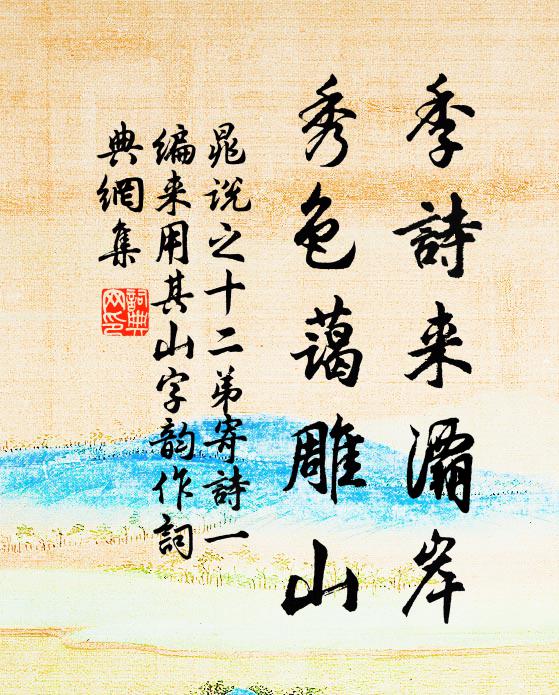 季詩来灞岸
秀色蔼雕山
晁说之十二弟寄詩一
编来用其山字韵作詞
典網集
詞典网印